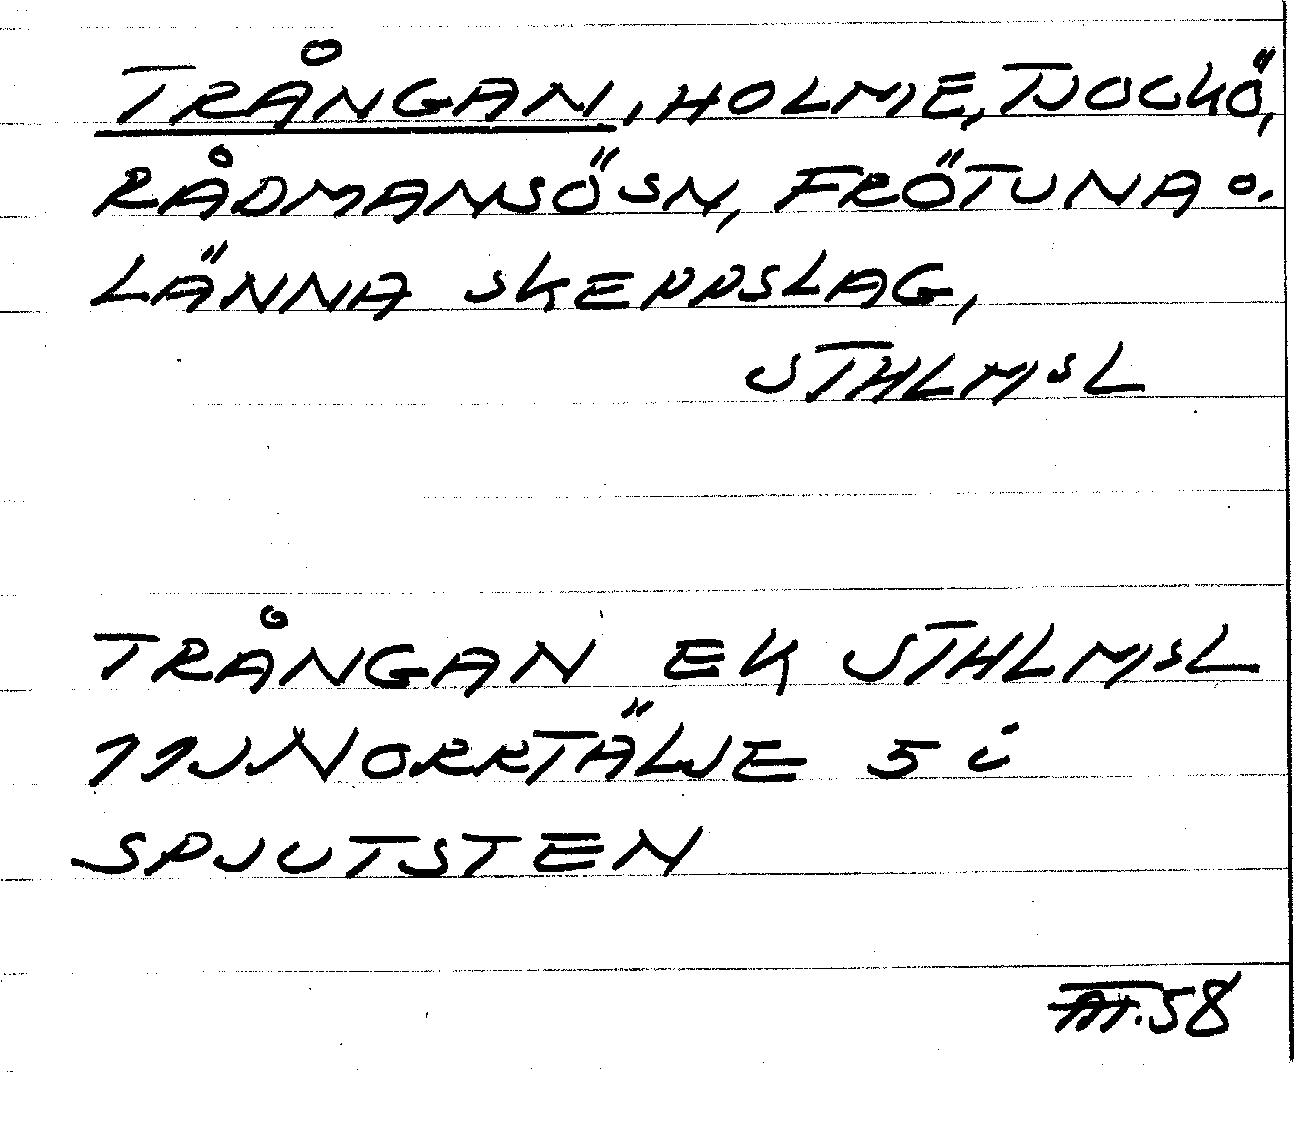 TRÅNGAN, HOLME, TJOCKÖ,
RÅDMANSÖ SN, FRÖTUNA o.
LÄNNA SKEPPSLAG,
STHLMSL
TRÅNGAN EK STHLMSL
11J NORRTÄLJE 5 i
SPJUTSTEN
58